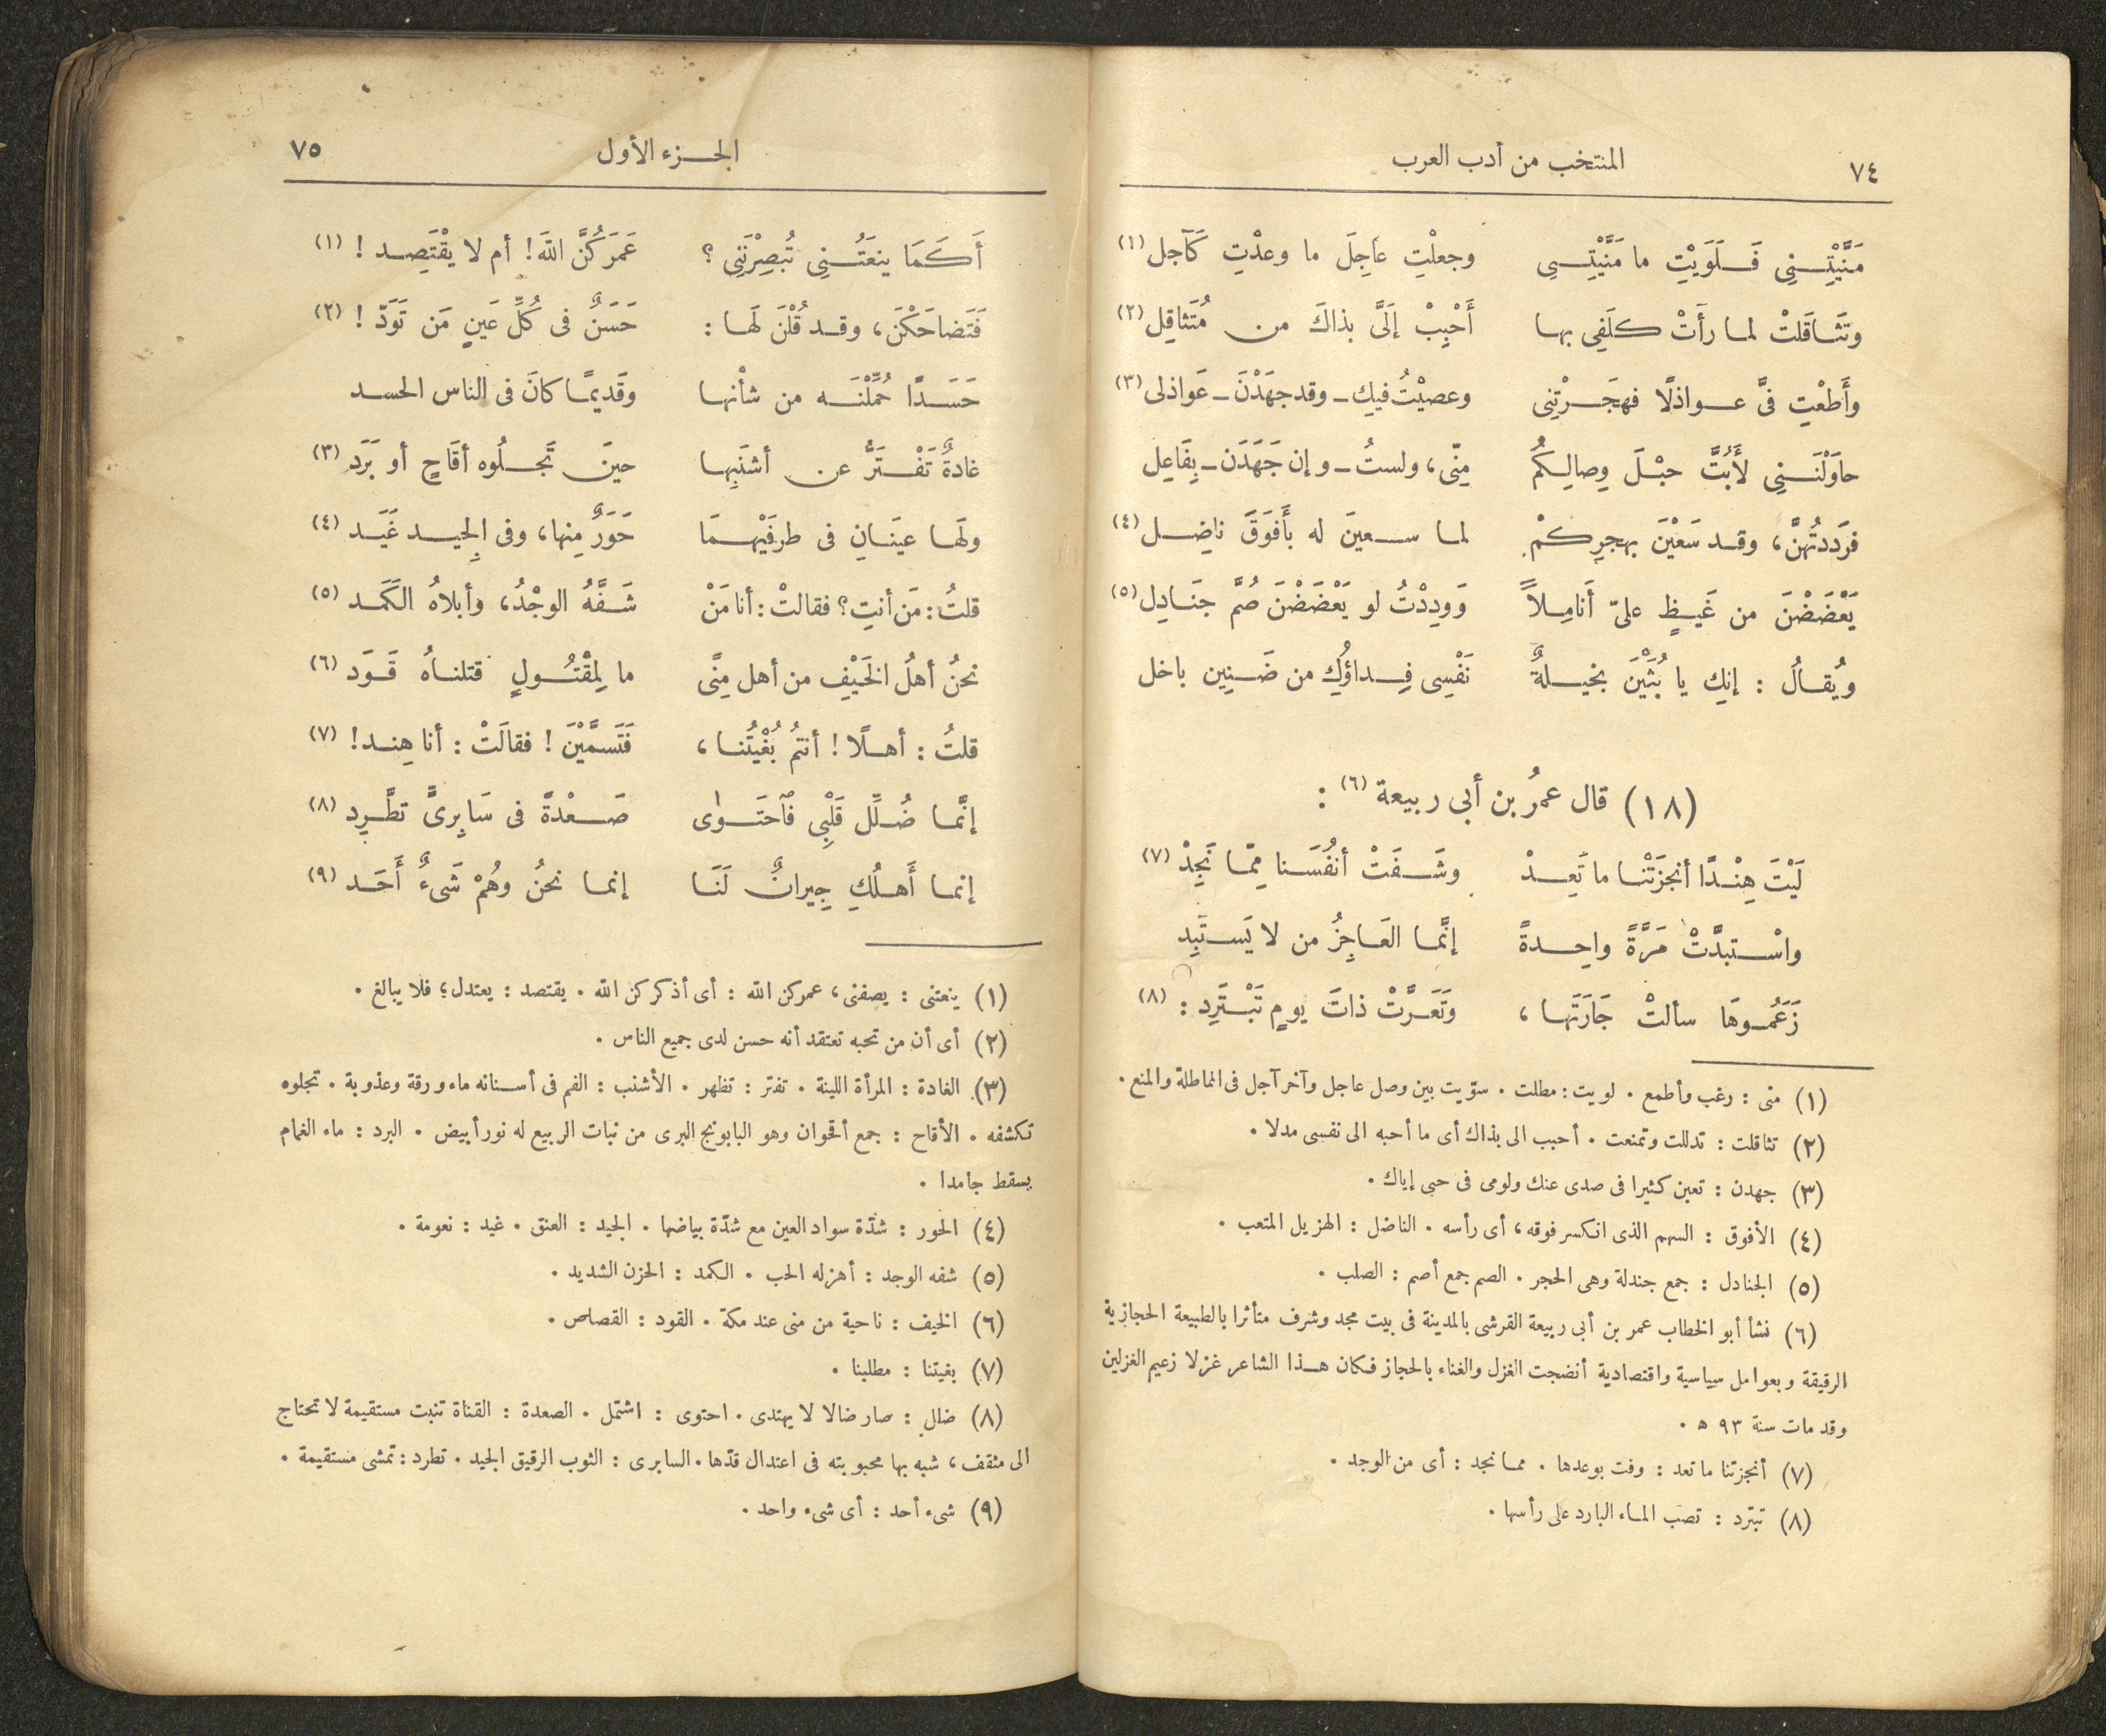 ٧٤ المنتخب من أدب العرب
مَنَّيْتِـنِى فَـلَوَيْتِ ما مَنَّيْتِـى وجعلْتِ عاجِلَ ما وعدْتِ كَآجل (١)
وتَثـاقَلتْ لمـا رأَتْ كلَفِى بهـا أَحْبِبْ إلَىَّ بذاكَ من مُتَثاقِل (٢)
وأَطَعْتِ فىَّ عـواذلًا فهجَـرْتِنِى وعصيْتُ فيكِ ـ وقد جهَدْنَ ـ عَواذلى (٣)
حاوَلْنَـنِى لأَبُتَّ حبْـلَ وِصالِـكُمُ مِنّى، ولستُ ـ وإن جَهَدَن ـ بِفَاعِل
فرَدَدتُهنَّ، وقـد سَعَيْنَ بهجرِكمْ لمـا سـعينَ له بأَفوَقَ ناضِـل (٤)
يَعْضَضْنَ من غَيـظٍ علىّ أَنامِـلاً وَودِدْتُ لو يَعْضَضْنَ صُمَّ جنَـادِل (٥)
ويُقـالُ : إنكِ يا بُثَيْنَ بخيـلةٌ نَفْسِى فِـداؤُكِ من ضَـنِين باخل
(١٨) قال عمرُ بن أبى ربيعة (٦) :
لَيْتَ هِنْـدًا أنجزَتْنـا ما تَعِـدْ وشَـفَتْ أنفُسَـنا مِمّـا نَجِدْ (٧)
واسْـتبدَّتْ مَرَّةً واحِـدةً إنَّمـا العَـاجِزُ من لا يَسـتَبِد
زَعَمُـوهَا سألتْ جَارَتَهـا ، وتَعَـرَّتْ ذاتَ يومٍ تَبْـتَرِد : (٨)
(١) منى : رغب وأطمع . لويت : مطلت . سوّيت بين وصل عاجل وآخر آجل فى المماطلة والمنع .
(٢) تثاقلت : تدللت وتمنعت . أحبب الى بذاك أى ما أحبه الى نفسى مدلا .
(٣) جهدن : تعبن كثيرا فى صدى عنك ولومى فى حبى إياك .
(٤) الأفوق : السهم الذى انكسر فوقه، أى رأسه . الناضل : الهزيل المتعب .
(٥) الجنادل : جمع جندلة وهى الحجر . الصم جمع أصم : الصلب .
(٦) نشأ أبو الخطاب عمر بن أبى ربيعة القرشى بالمدينة فى بيت مجد وشرف متأثرا بالطبيعة الحجازية
الرقيقة وبعوامل سياسية واقتصادية أنضجت الغزل والغناء بالحجاز فكان هـذا الشاعر غزلا زعيم الغزلين
وقد مات سنة ٩٣ ه .
(٧) أنجزتنا ما تعد : وفت بوعدها . ممـا نجد : أى من الوجد .
(٨) تبترد : تصب المـاء البارد على رأسها .
الجـزء الأول ٧٥
أَكَـمَا ينعَتُـنِى تُبصِرْنَنِى ؟ عَمرَكُنَّ اللهَ! أم لا يقْتَصِـد ! (١)
فَتَضاحَكْنَ، وقـد قُلْنَ لَهـا : حَسَنٌ فى كُلِّ عَينٍ مَن تَوَدّ ! (٢)
حَسَـدًا حُمِّلْنَـه من شأْنهـا وقَديمًـا كانَ فى الناس الحسـد
غادةٌ تَفْـتَرُّ عن أشنَبِهـا حينَ تَجـلُوه أقَاحٍ أو بَرَد (٣)
ولَهـا عينَـانِ فى طرفَيْهـمَا حَوَرٌ مِنها، وفى الجيـد غَيَـد (٤)
قلتُ : مَن أنتِ؟ فقالتْ : أنا مَنْ شَـفَّهُ الوجْدُ، وأبلاهُ الكَمَـد (٥)
نحنُ أهلُ الخَيْفِ من أهل مِنًى ما لِمِقْتُـولٍ قتلنـاهُ قَـوَد (٦)
قلتُ : أهـلًا ! أنتمُ بُغْيتُنـا ، فَتَسمَّيْنَ ! فقالَتْ : أنا هِنـد ! (٧)
إنَّمـا ضُـلِّل قَلْبِى فٱحتَـوٰى صَـعْدةً فى سَابِرىٍّ تطَّـرِد (٨)
إنمـا أَهـلُكِ جِيرانٌ لَنَـا إنمـا نحنُ وهُمْ شَىءٌ أَحَـد (٩)
(١) ينعتنى : يصفنى، عمركن الله : أى أذكركن الله . يقتصد : يعتدل؛ فلا يبالغ .
(٢) أى أن من تحبه تعتقد أنه حسن لدى جميع الناس .
(٣) الغادة : المرأة اللينة . تفتر : تظهر . الأشنب : الفم فى أسـنانه ماء ورقة وعذوبة . تجلوه
تكشفه . الأقاح : جمع أقحوان وهو البابونج البرى من نبات الربيع له نور أبيض . البرد : ماء الغمام
يسقط جامدا .
(٤) الحور : شدّة سواد العين مع شدّة بياضها . الجيد : العنق . غيد : نعومة .
(٥) شفه الوجد : أهزله الحب . الكمد : الحزن الشديد .
(٦) الخيف : ناحية من منى عند مكة . القود : القصاص .
(٧) بغيتنا : مطلبنا .
(٨) ضال : صار ضالا لا يهتدى . احتوى : اشتمل . الصعدة : القناة تنبت مستقيمة لا تحتاج
الى مثقف، شبه بها محبوبته فى اعتدال قدّها . السابرى : الثوب الرقيق الجيد . تطرد : تمشى مستقيمة .
(٩) شىء أحد : أى شىء واحد .